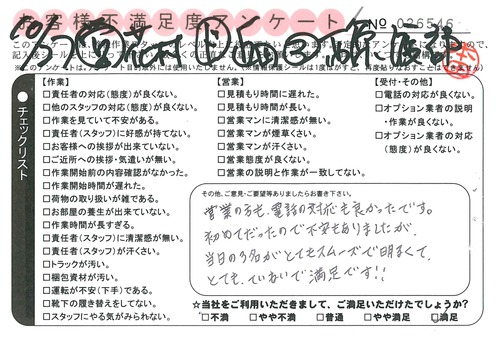 お客様不満足度アンケート
No 026546
【作業】
□責任者の対応(態度)が良くない。
□他のスタッフの対応(態度)が良くない。
□作業を見ていて不安がある。
□責任者(スタッフ)に好感が持てない。
□お客様への挨拶が出来ていない。
□ご近所への挨拶・気遣いが無い。
□作業開始前の内容確認がなかった。
□作業開始時間が遅れた。
□荷物の取り扱いが雑である。
□お部屋の養生が出来ていない。
□作業時間が長すぎる。
□責任者(スタッフ)に清潔感が無い。
□責任者(スタッフ)が汗くさい。
□トラックが汚い。
□梱包資材が汚い。
□運転が不安(下手)である。
□靴下の履き替えをしてない。
□スタッフにやる気がみられない。
【営業】
□見積もり時間に遅れた。
□見積もり時間が長い。
□営業マンに清潔感が無い。
□営業マンが煙草くさい。
□営業マンが汗くさい。
□営業態度が良くない。
□営業の説明と作業が一致してない。
【受付・その他】
□電話の対応が良くない。
□オプション業者の説明
・作業が良くない。
□オプション業者の対応
(態度)が良くない。
チェックリスト
その他、ご意見・ご要望等ありましたらお書き下さい。
営業の方も、電話の対応も良かったです。
初めてだったので不安もありましたが、
当日の3名がとてもスムーズで明るくて、
とても、ていねいで満足です!!
☆当社をご利用いただきまして、ご満足いただけたでしょうか?
□不満 □やや不満 □普通 □やや満足 □満足